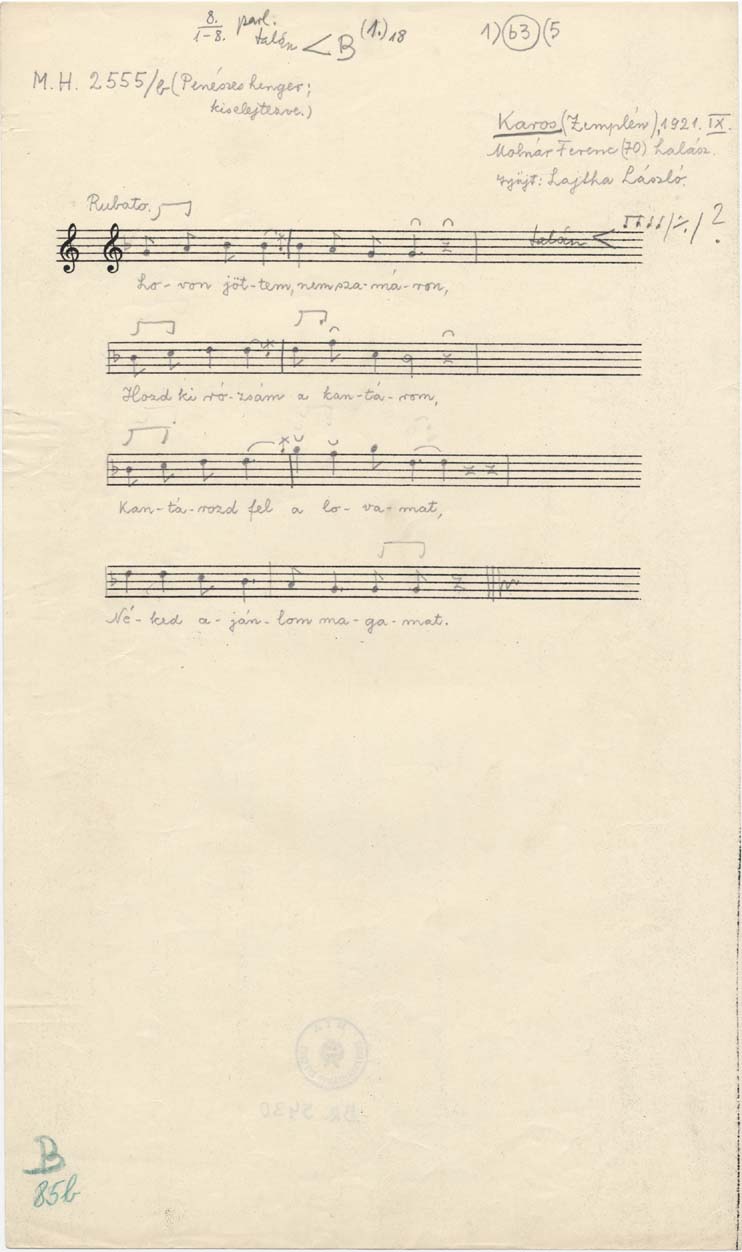 8. parl.
1-8. talán < B (1.) 18
1) (b3) (5
M. H. 2555/b (Penészes henger;
kiselejtezve.)
Karos (Zemplén), 1921. IX.
Molnár Ferenc (70) halász.
gyűjt: Lajtha László.
Rubato.
talán < ?
Lo-von jöt-tem, nem sza-má-ron,
Hozd ki ró-zsám a kan-tá-rom,
Kan-tá-rozd fel a lo-va-mat,
Né-ked a-ján-lom ma-ga-mat.
BR 5430
B
85b